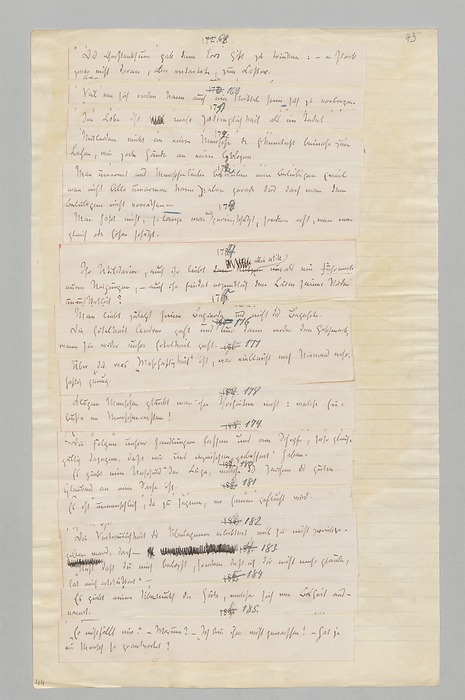 43
168
Das Christenthum gab dem Eros Gift zu trinken: – er starb
zwar nicht daran, aber entartete, zum Laster.
169
Viel von sich reden kann auch ein Mittel sein, sich zu verbergen.
Im Lobe ist mehr Zudringlichkeit als im Tadel.
Mitleiden wirkt an einem Menschen der Erkenntniss beinahe zum
Lachen, wie zarte Hände an einem Cyklopen.
Man umarmt aus Menschenliebe bisweilen einen Beliebigen (weil
man nicht Alle umarmen kann): aber gerade Das darf man dem
Beliebigen nicht verrathen –
Man hasst nicht, so lange man noch gering schätzt, sondern erst, wenn man
gleich oder höher schätzt.
Ihr Utilitarier, auch ihr liebt alles utile nur als ein Fuhrwerk
eurer Neigungen, – auch ihr findet eigentlich den Lärm seiner Räder
unausstehlich?
Man liebt zuletzt seine Begierde und nicht das Begehrte.
176
Die Eitelkeit Anderer geht uns nur dann wider den Geschmack,
wenn sie wider unsre Eitelkeit geht.
177
Über Das, was „Wahrhaftigkeit“ ist, war vielleicht noch Niemand wahr-
haftig genug.
178
Klugen Menschen glaubt man ihre Thorheiten nicht: welche Ein-
busse an Menschenrechten!
179
Die Folgen unsrer Handlungen fassen uns am Schopfe, sehr gleich-
gültig dagegen, dass wir uns inzwischen „gebessert“ haben.
180
Es giebt eine Unschuld in der Lüge, welche das Zeichen des guten
Glaubens an eine Sache ist.
181
Es ist unmenschlich, da zu segnen, wo Einem geflucht wird.
182
Die Vertraulichkeit des Überlegenen erbittert, weil sie nicht zurückge-
geben werden darf. –
183
„Nicht dass du mich belogst, sondern dass ich dir nicht mehr glaube,
hat mich erschüttert“ –
184
Es giebt einen Übermuth der Güte, welcher sich wie Bosheit aus-
nimmt.
185.
„Er missfällt mir.“ – Warum? – „Ich bin ihm nicht gewachsen.“ – Hat je
ein Mensch so geantwortet?
44